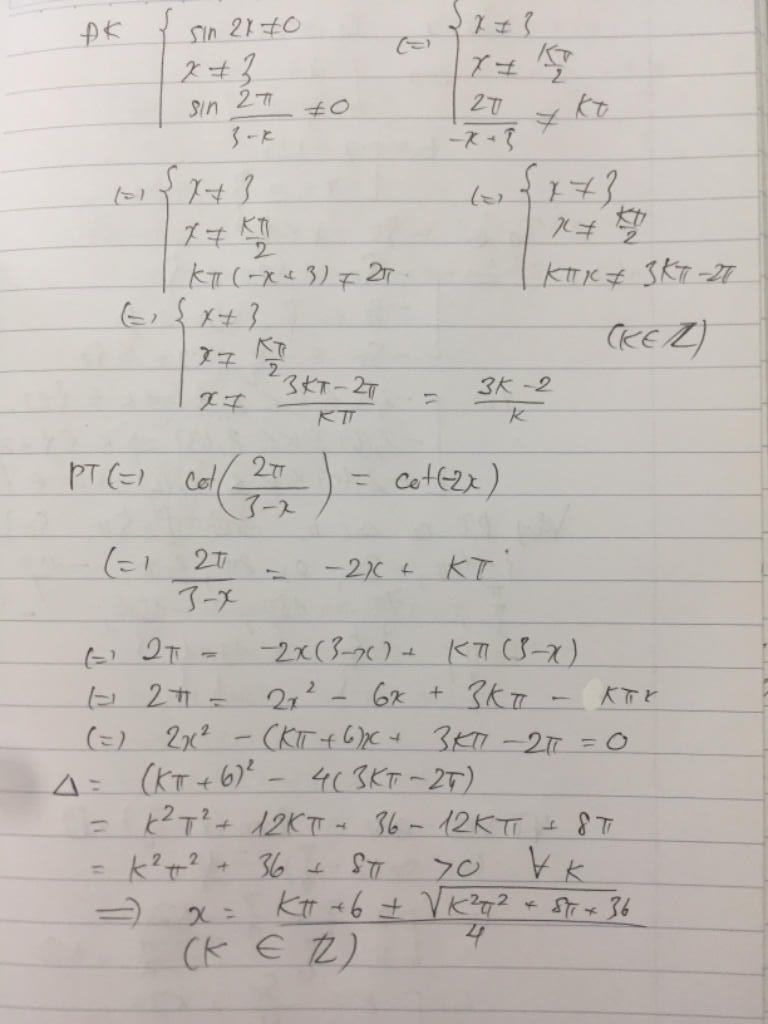 ĐK { sin 2x ≠ 0 (=) { x ≠ 3
x ≠ 3 x ≠ Kπ/2
sin 2π/(3-x) ≠ 0 2π/(-x+3) ≠ Kπ
(=) { x ≠ 3 (=) { x ≠ 3
x ≠ Kπ/2 x ≠ Kπ/2
Kπ(-x+3) ≠ 2π Kπx ≠ 3Kπ-2π
(=) { x ≠ 3
x ≠ Kπ/2 (K∈ℤ)
x ≠ (3Kπ-2π)/(Kπ) = (3K-2)/K
PT (=) cot(2π/(3-x)) = cot(-2x)
(=) 2π/(3-x) = -2x + Kπ
(=) 2π = -2x(3-x) + Kπ(3-x)
(=) 2π = 2x² - 6x + 3Kπ - Kπx
(=) 2x² - (Kπ+6)x + 3Kπ - 2π = 0
Δ = (Kπ+6)² - 4(3Kπ-2π)
= K²π² + 12Kπ + 36 - 12Kπ + 8π
= K²π² + 36 + 8π >0 ∀ K
=> x = (Kπ+6 ± √(K²π² + 8π + 36))/4
(K ∈ ℤ)